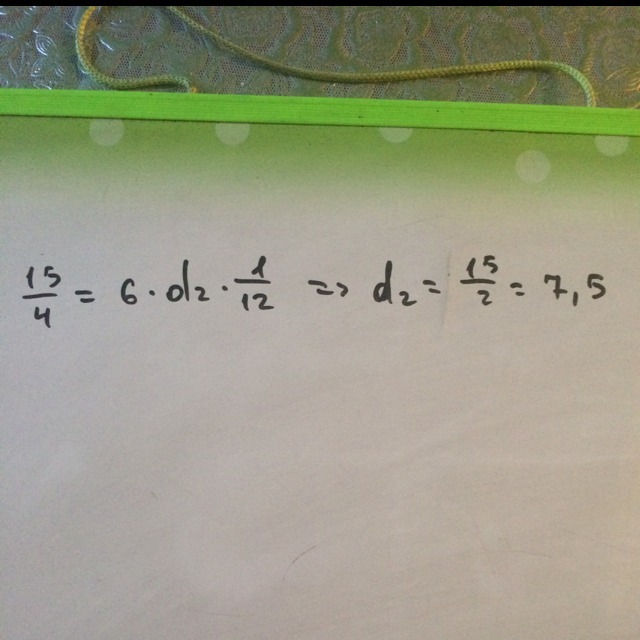 15/4 = 6 · d₂ · 1/12 => d₂ = 15/2 = 7,5